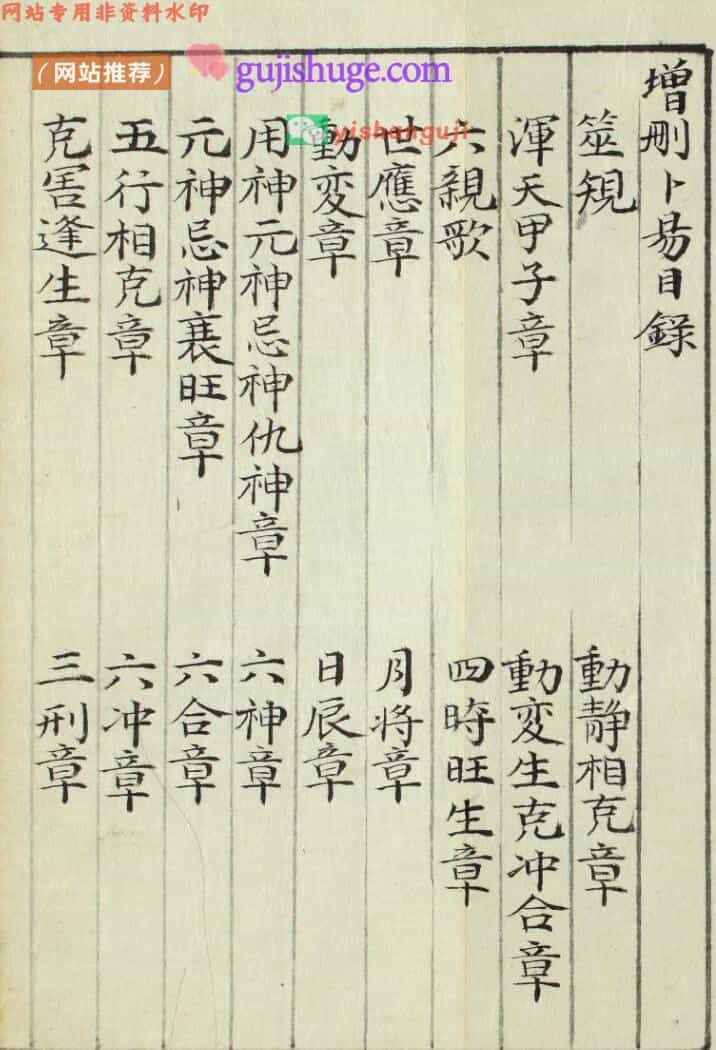 网站专用非资料水印
（网站推荐）
gujishuge.com
yishanguji
增刪卜易目錄
筮規
動靜相克章
渾天甲子章
動变生克冲合章
六親歌
四時旺生章
世應章
月将章
動変章
日辰章
用神元神忌神仇神章
六神章
元神忌神衰旺章
六合章
五行相克章
六冲章
克害逢生章
三刑章